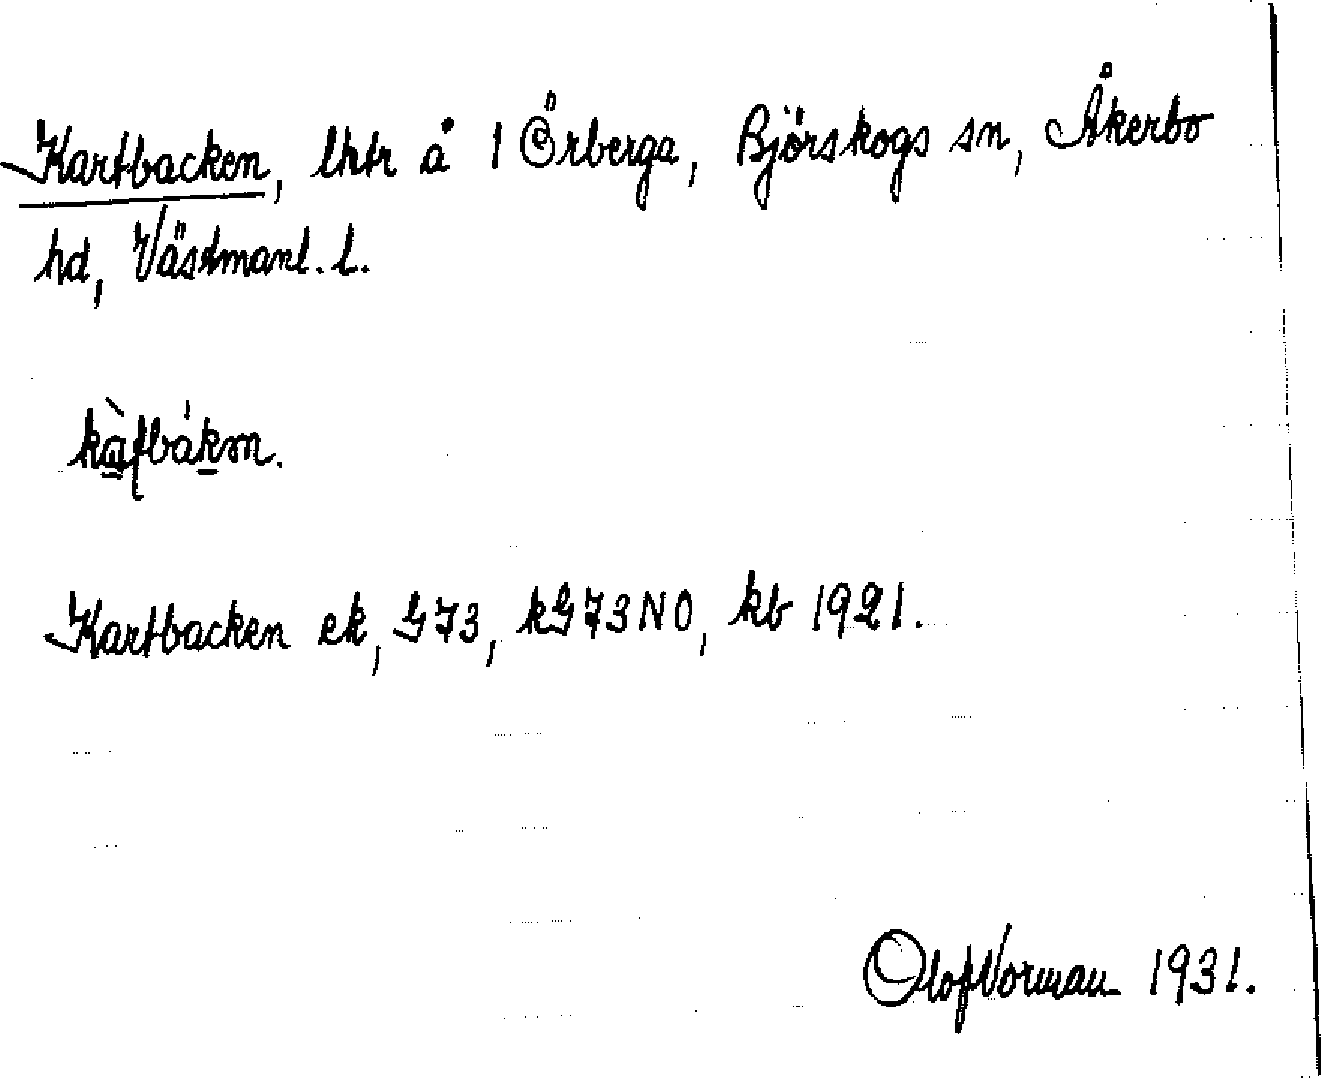 Kartbacken, lhtr å 1 Örberga, Björskogs sn, Åkerbo
hd, Västmanl. l.
Kartbacken ek, G73, kG73NO, kb 1921.
Olof Norman 1931.